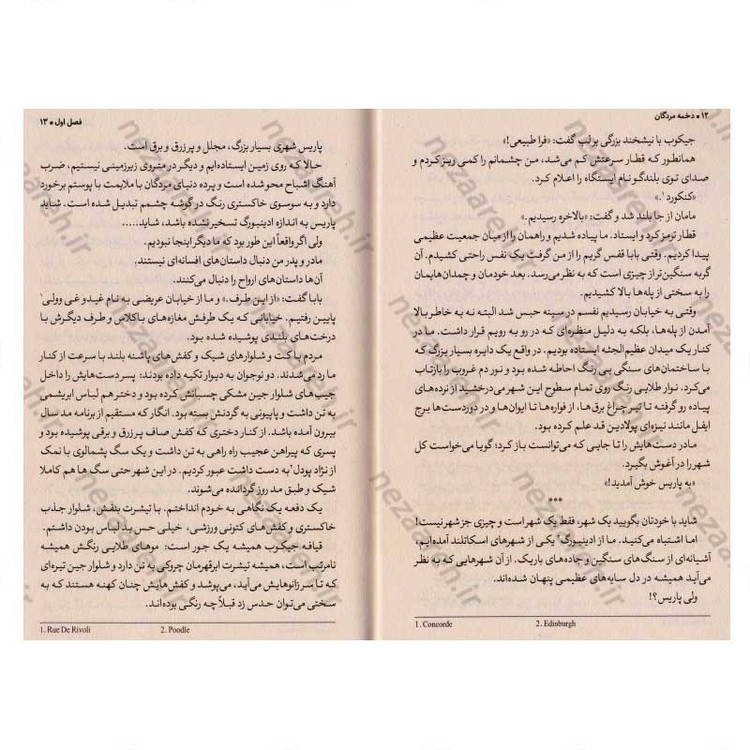 ۱۲ • دخمه مردگان
جیکوب با نیشخند بزرگی بر لب گفت: «فرا طبیعی!»
همانطور که قطار سرعتش کم می‌شد، من چشمانم را کمی ریز کردم و
صدای توی بلندگو نام ایستگاه را اعلام کرد.
«کنکورد۱.»
«مامان از جا بلند شد و گفت: «بالاخره رسیدیم.»
قطار ترمز کرد و ایستاد. ما پیاده شدیم و راهمان را از میان جمعیت عظیمی
پیدا کردیم. وقتی بابا قفس گریم را از من گرفت یک نفس راحتی کشیدم. آن
گربه سنگین‌تر از چیزی است که به نظر می‌رسد. بعد خودمان و چمدان‌هایمان
را به سختی از پله‌ها بالا کشیدیم.
وقتی به خیابان رسیدیم نفسم در سینه حبس شد البته نه به خاطر بالا
آمدن از پله‌ها، بلکه به دلیل منظره‌ای که در رو به رویم قرار داشت. ما در
کنار یک میدان عظیم‌الجثه ایستاده بودیم. در واقع یک دایره بسیار بزرگ که
با ساختمان‌های سنگی بی رنگ احاطه شده بود و نور دم غروب را بازتاب
می‌کرد. نوار طلایی رنگ روی تمام سطوح این شهر می‌درخشید از نرده‌های
پیاده رو گرفته تا تیر چراغ برق‌ها، از فواره‌ها تا ایوان‌ها و در دوردست‌ها برج
ایفل مانند نیزه‌ای پولادین قد علم کرده بود.
مادر دست‌هایش را تا جایی که می‌توانست باز کرد؛ گویا می‌خواست کل
شهر را در آغوش بگیرد.
«به پاریس خوش آمدید!»
***
شاید با خودتان بگویید یک شهر، فقط یک شهر است و چیزی جز شهر نیست!
اما اشتباه می‌کنید. ما از ادینبورگ۲ یکی از شهرهای اسکاتلند آمده‌ایم،
آشیانه‌ای از سنگ‌های سنگین و جاده‌های باریک. از آن شهرهایی که به نظر
می‌آید همیشه در دل سایه‌های عظیمی پنهان شده‌اند.
ولی پاریس؟!
1. Concorde 2. Edinburgh
فصل اول • ۱۳
پاریس شهری بسیار بزرگ، مجلل و پر زرق و برق است.
حالا که روی زمین ایستاده‌ایم و دیگر در متروی زیرزمینی نیستیم، ضرب
آهنگ اشباح محو شده است و پرده دنیای مردگان با ملایمت با پوستم برخورد
دارد و به سوسوی خاکستری رنگ در گوشه چشمم تبدیل شده است. شاید
پاریس به اندازه ادینبورگ تسخیر نشده باشد، شاید.....
ولی اگر واقعاً این طور بود که ما دیگر اینجا نبودیم.
مادر و پدر من دنبال داستان‌های افسانه‌ای نیستند.
آن‌ها داستان‌های ارواح را دنبال می‌کنند.
بابا گفت: «از این طرف.» و ما از خیابان عریضی به نام غیدو غی وولی۱
پایین رفتیم. خیابانی که یک طرفش مغازه‌های باکلاس و طرف دیگرش با
درخت‌های بلندی پوشیده شده بود.
مردم با کت و شلوارهای شیک و کفش‌های پاشنه بلند با سرعت از کنار
ما رد می‌شدند. دو نوجوان به دیوار تکیه داده بودند: پسر دست‌هایش را داخل
جیب‌های شلوار جین مشکی چسبانش کرده بود و دختر هم لباس ابریشمی
به تن داشت و پاپیونی به گردنش بسته بود. انگار که مستقیم از برنامه مد سال
بیرون آمده باشد. از کنار دختری که کفش صاف پر زرق و برقی پوشیده بود و
پسری که پیراهن عجیب راه راهی به تن داشت و یک سگ پشمالوی با نمک
از نژاد پودل۲ به دست داشت عبور کردیم. در این شهر حتی سگ ها هم کاملا
شیک و طبق مد روز گردانده می‌شوند.
یک دفعه یک نگاهی به خودم انداختم. با تیشرت بنفش، شلوار جذب
خاکستری و کفش‌های کتونی ورزشی، خیلی حس بد لباس بودن داشتم.
قیافه جیکوب همیشه یک جور است: موهای طلایی رنگش همیشه
نامرتب است، همیشه تیشرت ابرقهرمان چروکی به تن دارد و شلوار جین تیره‌ای
که تا سر زانوهایش می‌آید، می‌پوشد و کفش‌هایش چنان کهنه هستند که به
سختی می‌توان حدس زد قبلاً چه رنگی بوده‌اند.
1. Rue De Rivoli 2. Poodle
nezaareh.ir